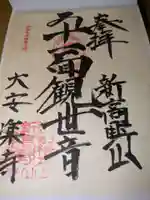 奉拝
新高野山
十一面観世音
大安楽寺